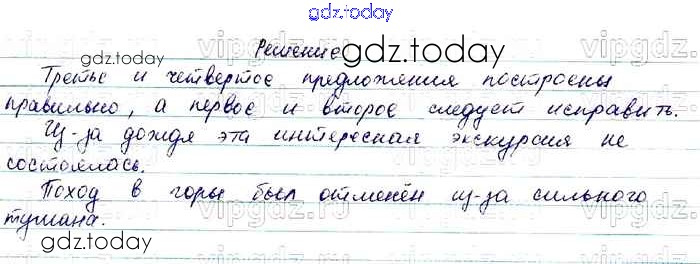 gdz.today
Решение gdz.today
Третье и четвертое предложения построены
правильно, а первое и второе следует исправить.
Из-за дождя эта интересная экскурсия не
состоялась.
Поход в горы был отменён из-за сильного
тумана.
gdz.today